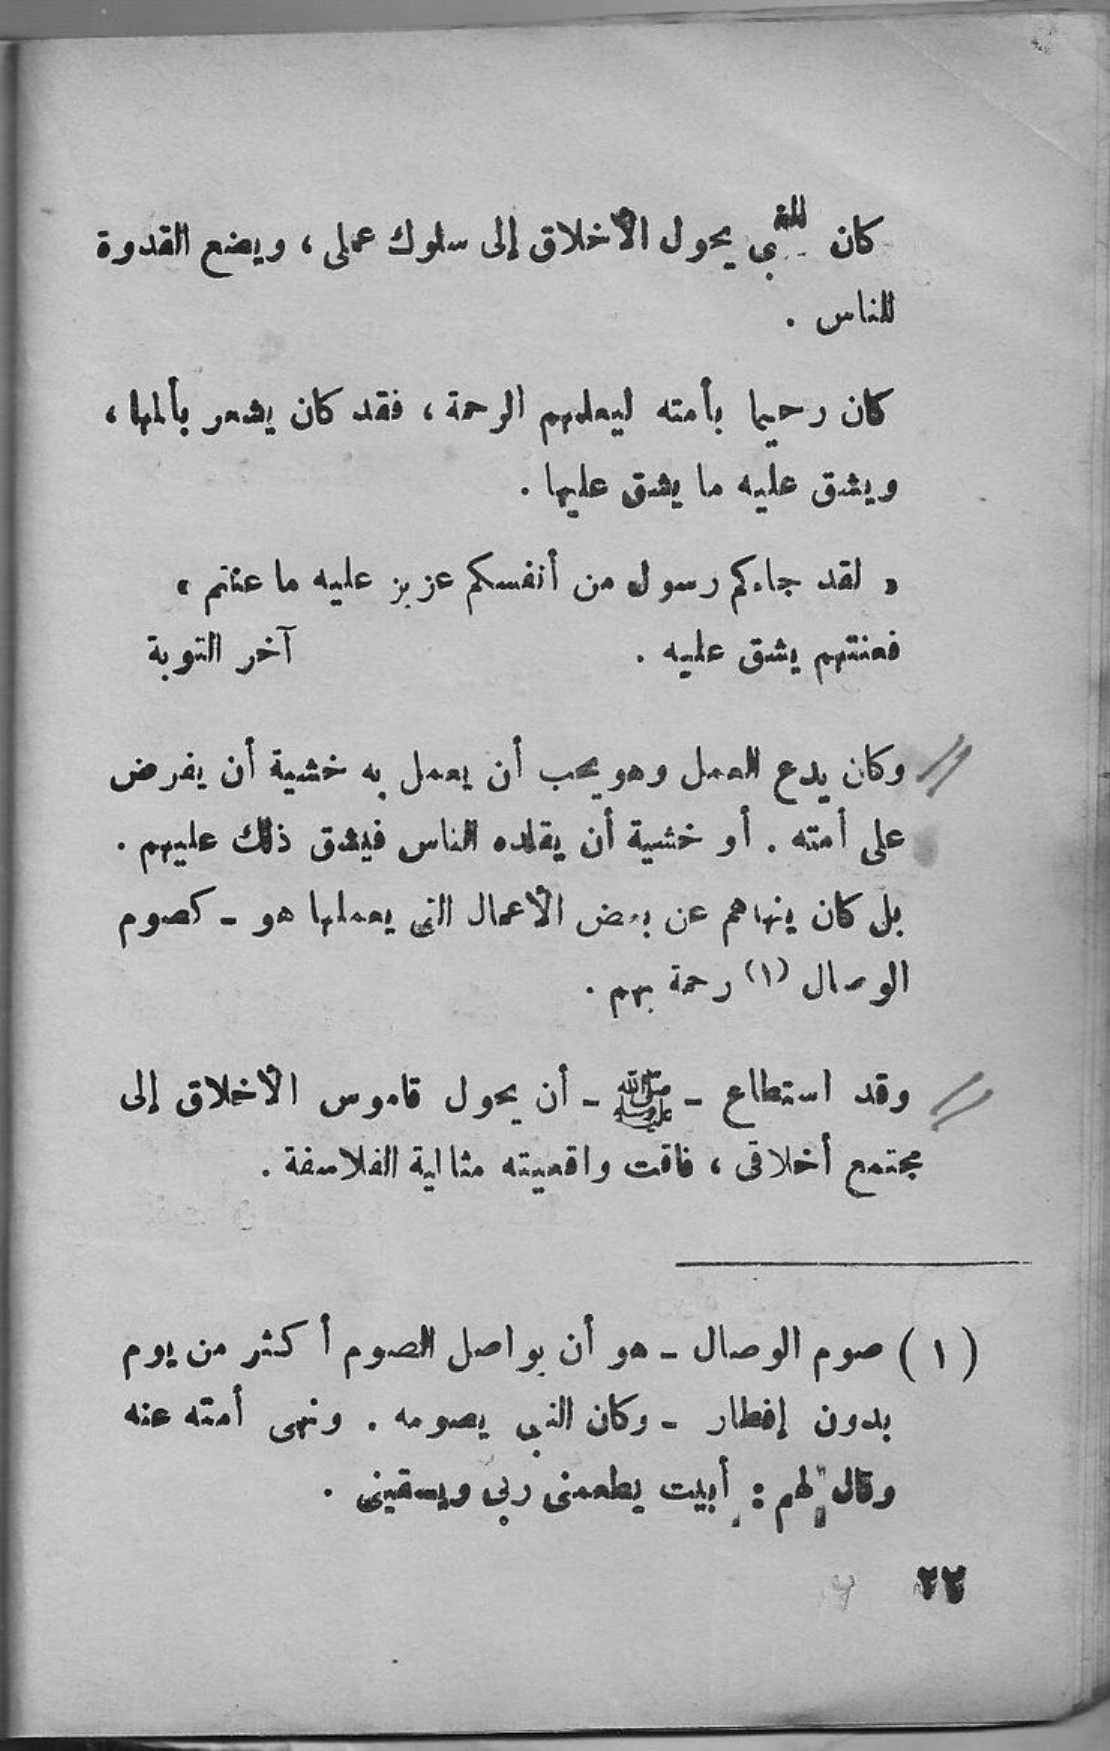 كان النبي يحول الأخلاق إلى سلوك عملى ، ويضع القدوة
للناس .
كان رحيما بأمته ليعلمهم الرحمة ، فقد كان يشعر بألمها ،
ويشق عليه ما يشق عليها .
« لقد جاءكم رسول من أنفسكم عزيز عليه ما عنتم »
فعنتهم يشق عليه . آخر التوبة
وكان يدع العمل وهو يحب أن يعمل به خشية أن يفرض
على أمته . أو خشية أن يقلده الناس فيشق ذلك عليهم .
بل كان ينهاهم عن بعض الأعمال التى يعملها هو - كصوم
الوصال (١) رحمة بهم .
وقد استطاع - ﷺ - أن يحول قاموس الأخلاق إلى
مجتمع أخلاقى ، فاقت واقعيته مثالية الفلاسفة .
(١) صوم الوصال - هو أن يواصل الصوم أكثر من يوم
بدون إفطار - وكان النبى يصومه . ونهى أمته عنه
وقال لهم : أبيت يطعمنى ربى ويسقينى .
٢٢